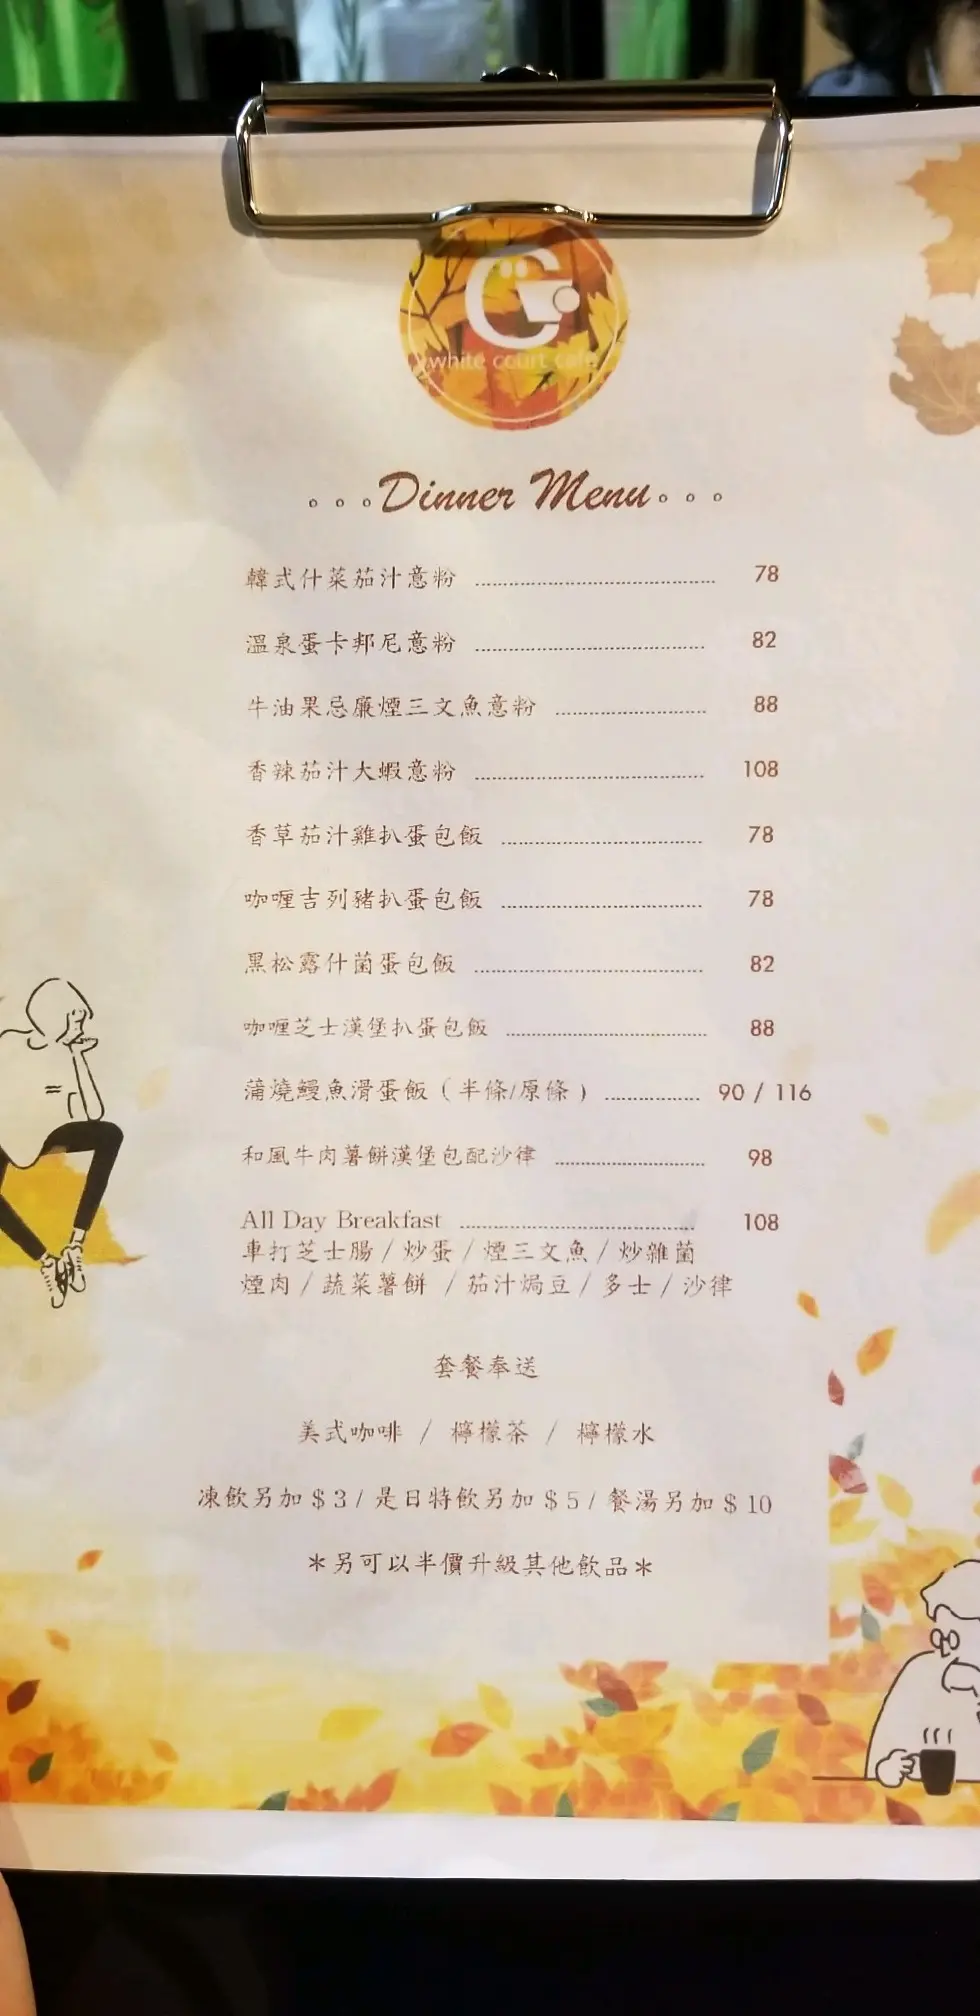 white court cafe
。。。Dinner Menu。。。
韓式什菜茄汁意粉 ........ 78
溫泉蛋卡邦尼意粉 ........ 82
牛油果忌廉煙三文魚意粉 ........ 88
香辣茄汁大蝦意粉 ........ 108
香草茄汁雞扒蛋包飯 ........ 78
咖喱吉列豬扒蛋包飯 ........ 78
黑松露什菌蛋包飯 ........ 82
咖喱芝士漢堡扒蛋包飯 ........ 88
蒲燒鰻魚滑蛋飯（半條/原條） ........ 90 / 116
和風牛肉薯餅漢堡包配沙律 ........ 98
All Day Breakfast ........ 108
車打芝士腸 / 炒蛋 / 煙三文魚 / 炒雜菌
煙肉 / 蔬菜薯餅 / 茄汁焗豆 / 多士 / 沙律
套餐奉送
美式咖啡 / 檸檬茶 / 檸檬水
凍飲另加 $ 3 / 是日特飲另加 $ 5 / 餐湯另加 $ 10
＊另可以半價升級其他飲品＊